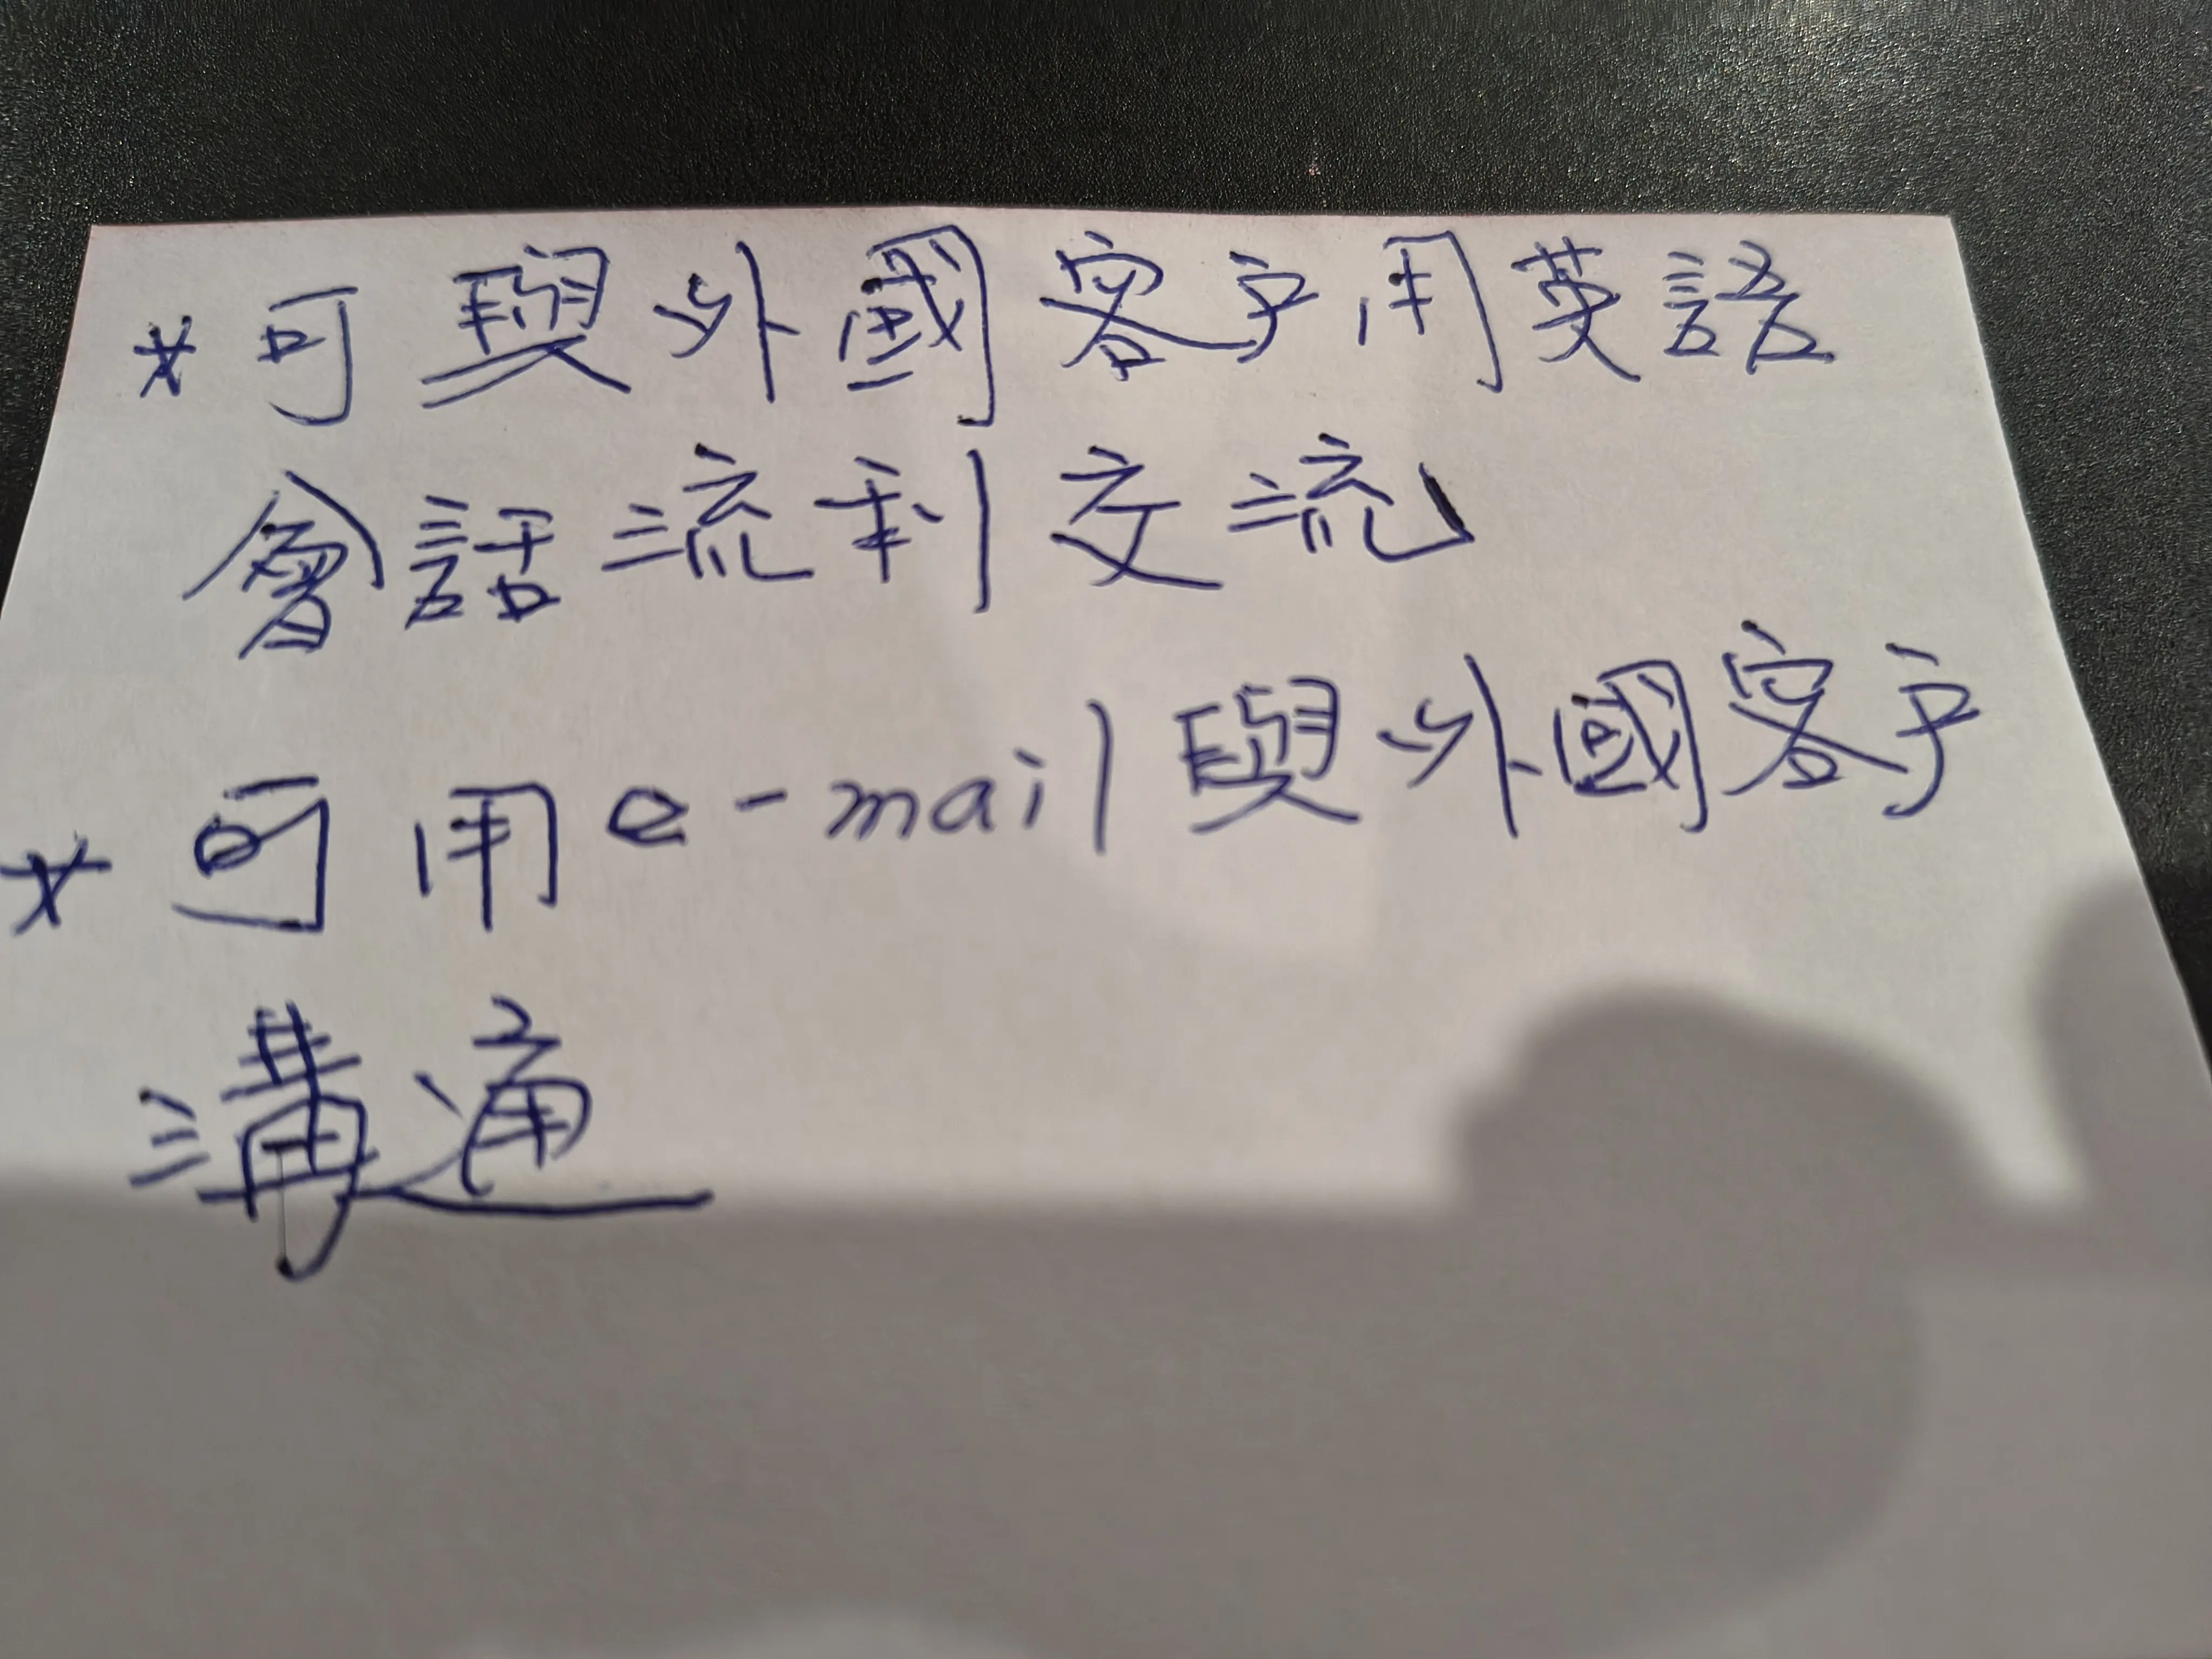 *可與外國客戶用英語
會話流利交流
*可用e-mail與外國客戶
溝通